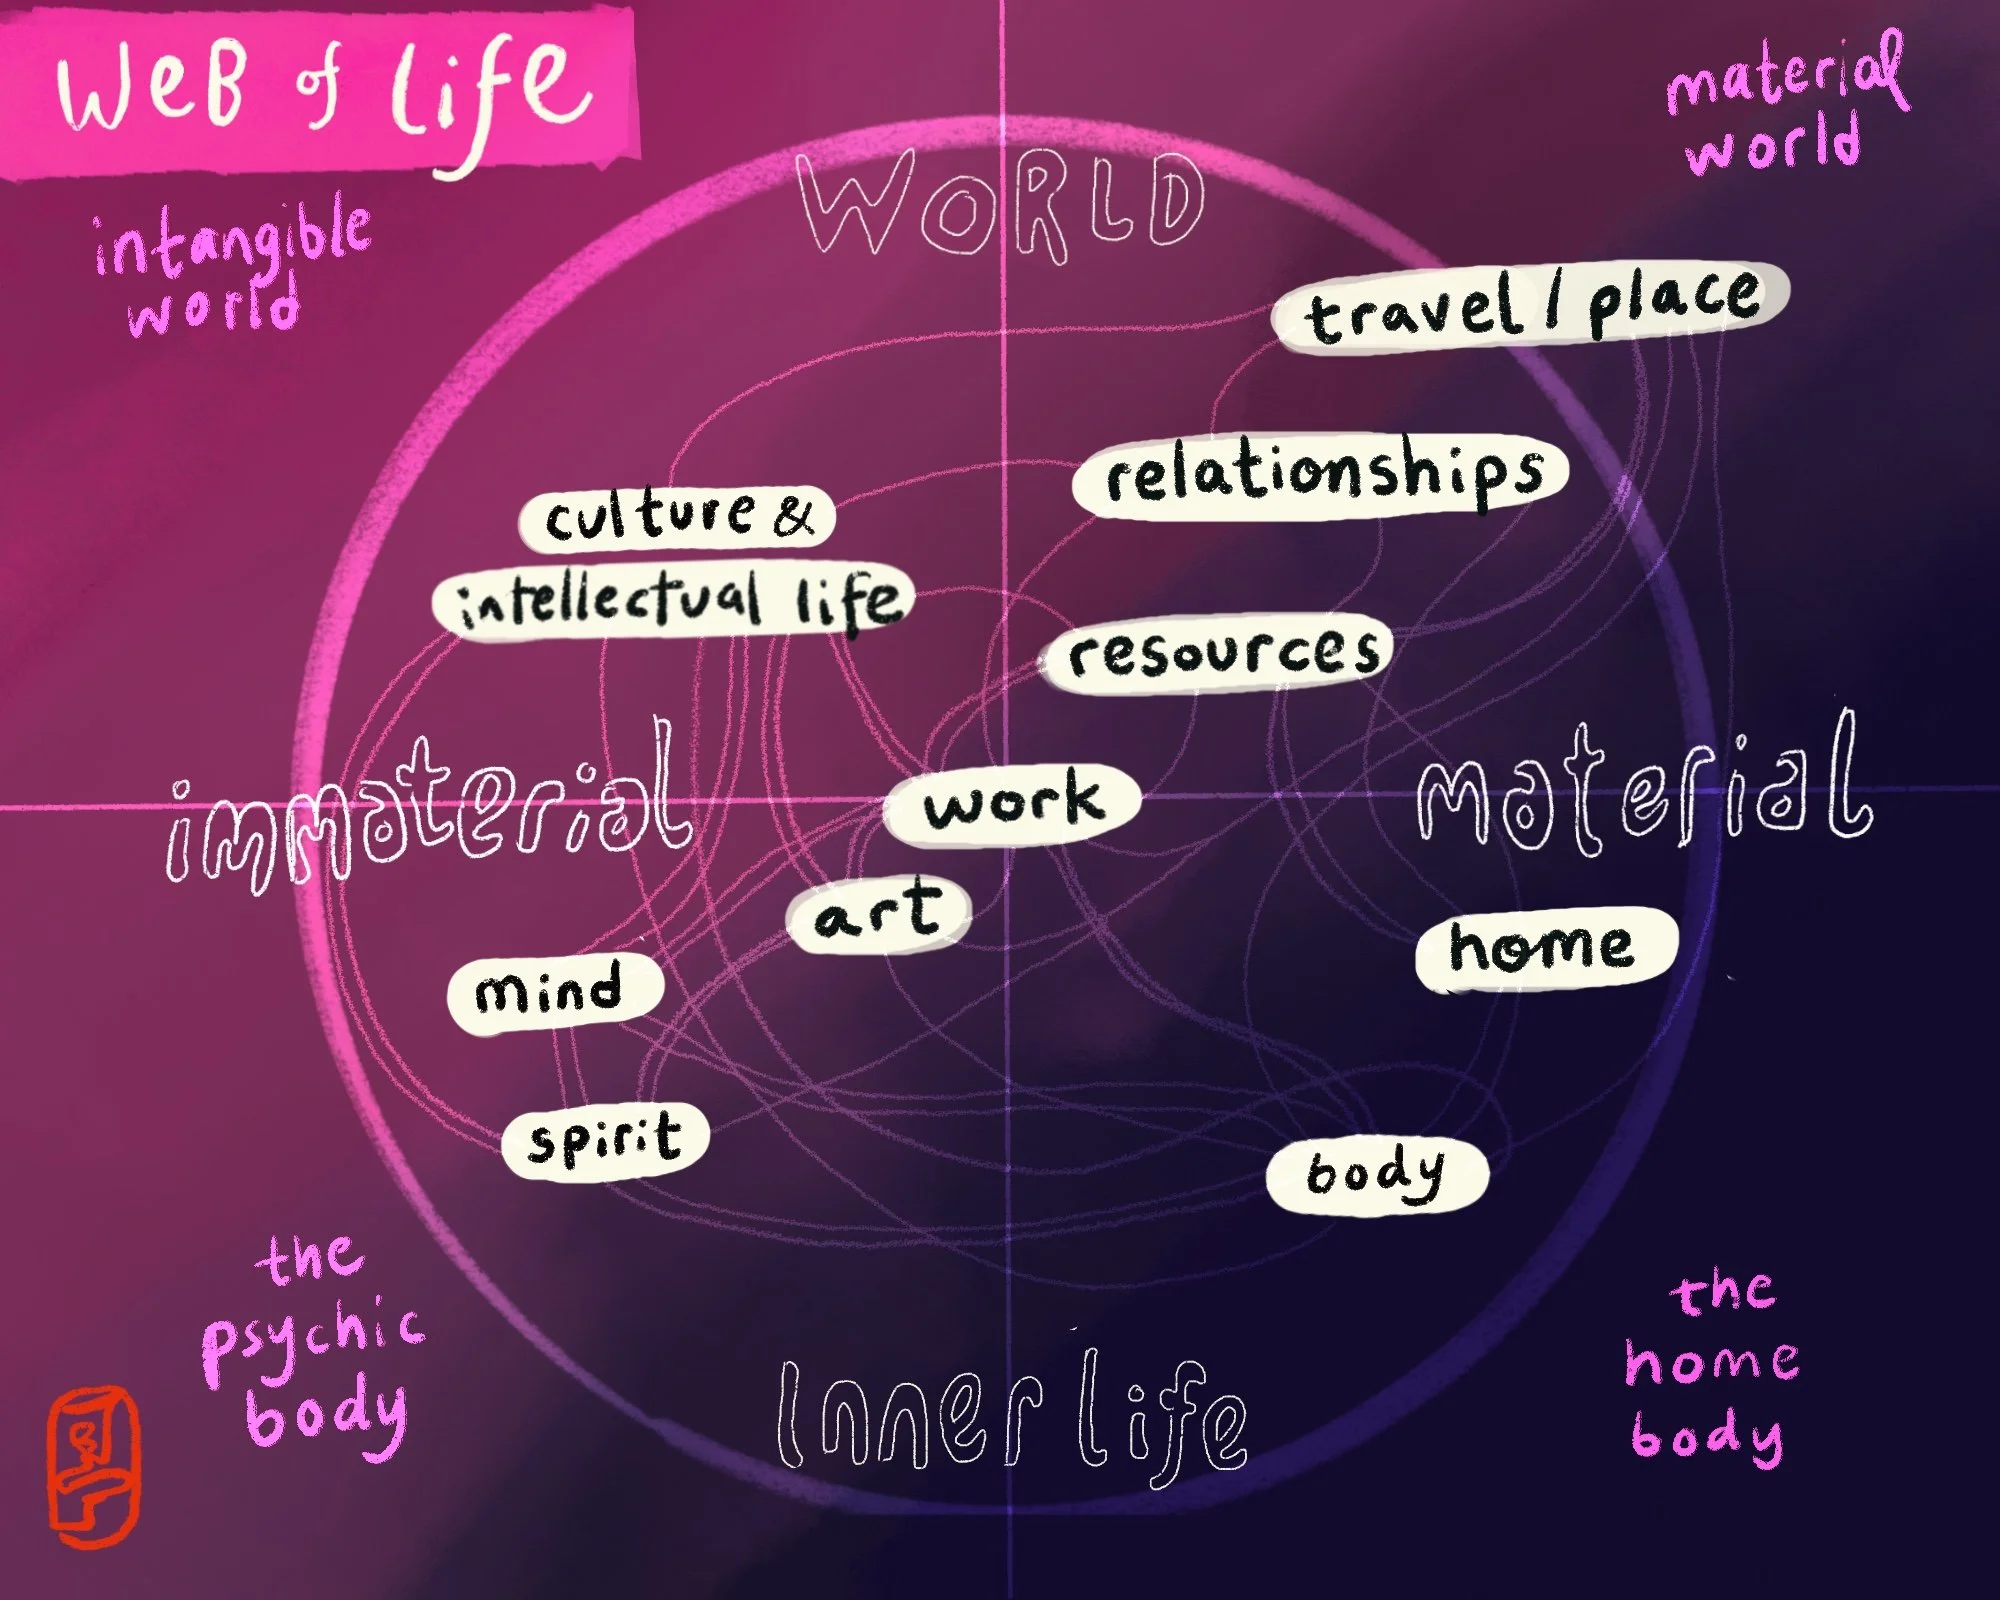 WeB of Life
material
world
intangible
world
WORLD
travel / place
relationships
culture &
intellectual life
resources
immaterial
material
work
art
home
mind
spirit
body
the
psychic
body
the
home
body
Inner life